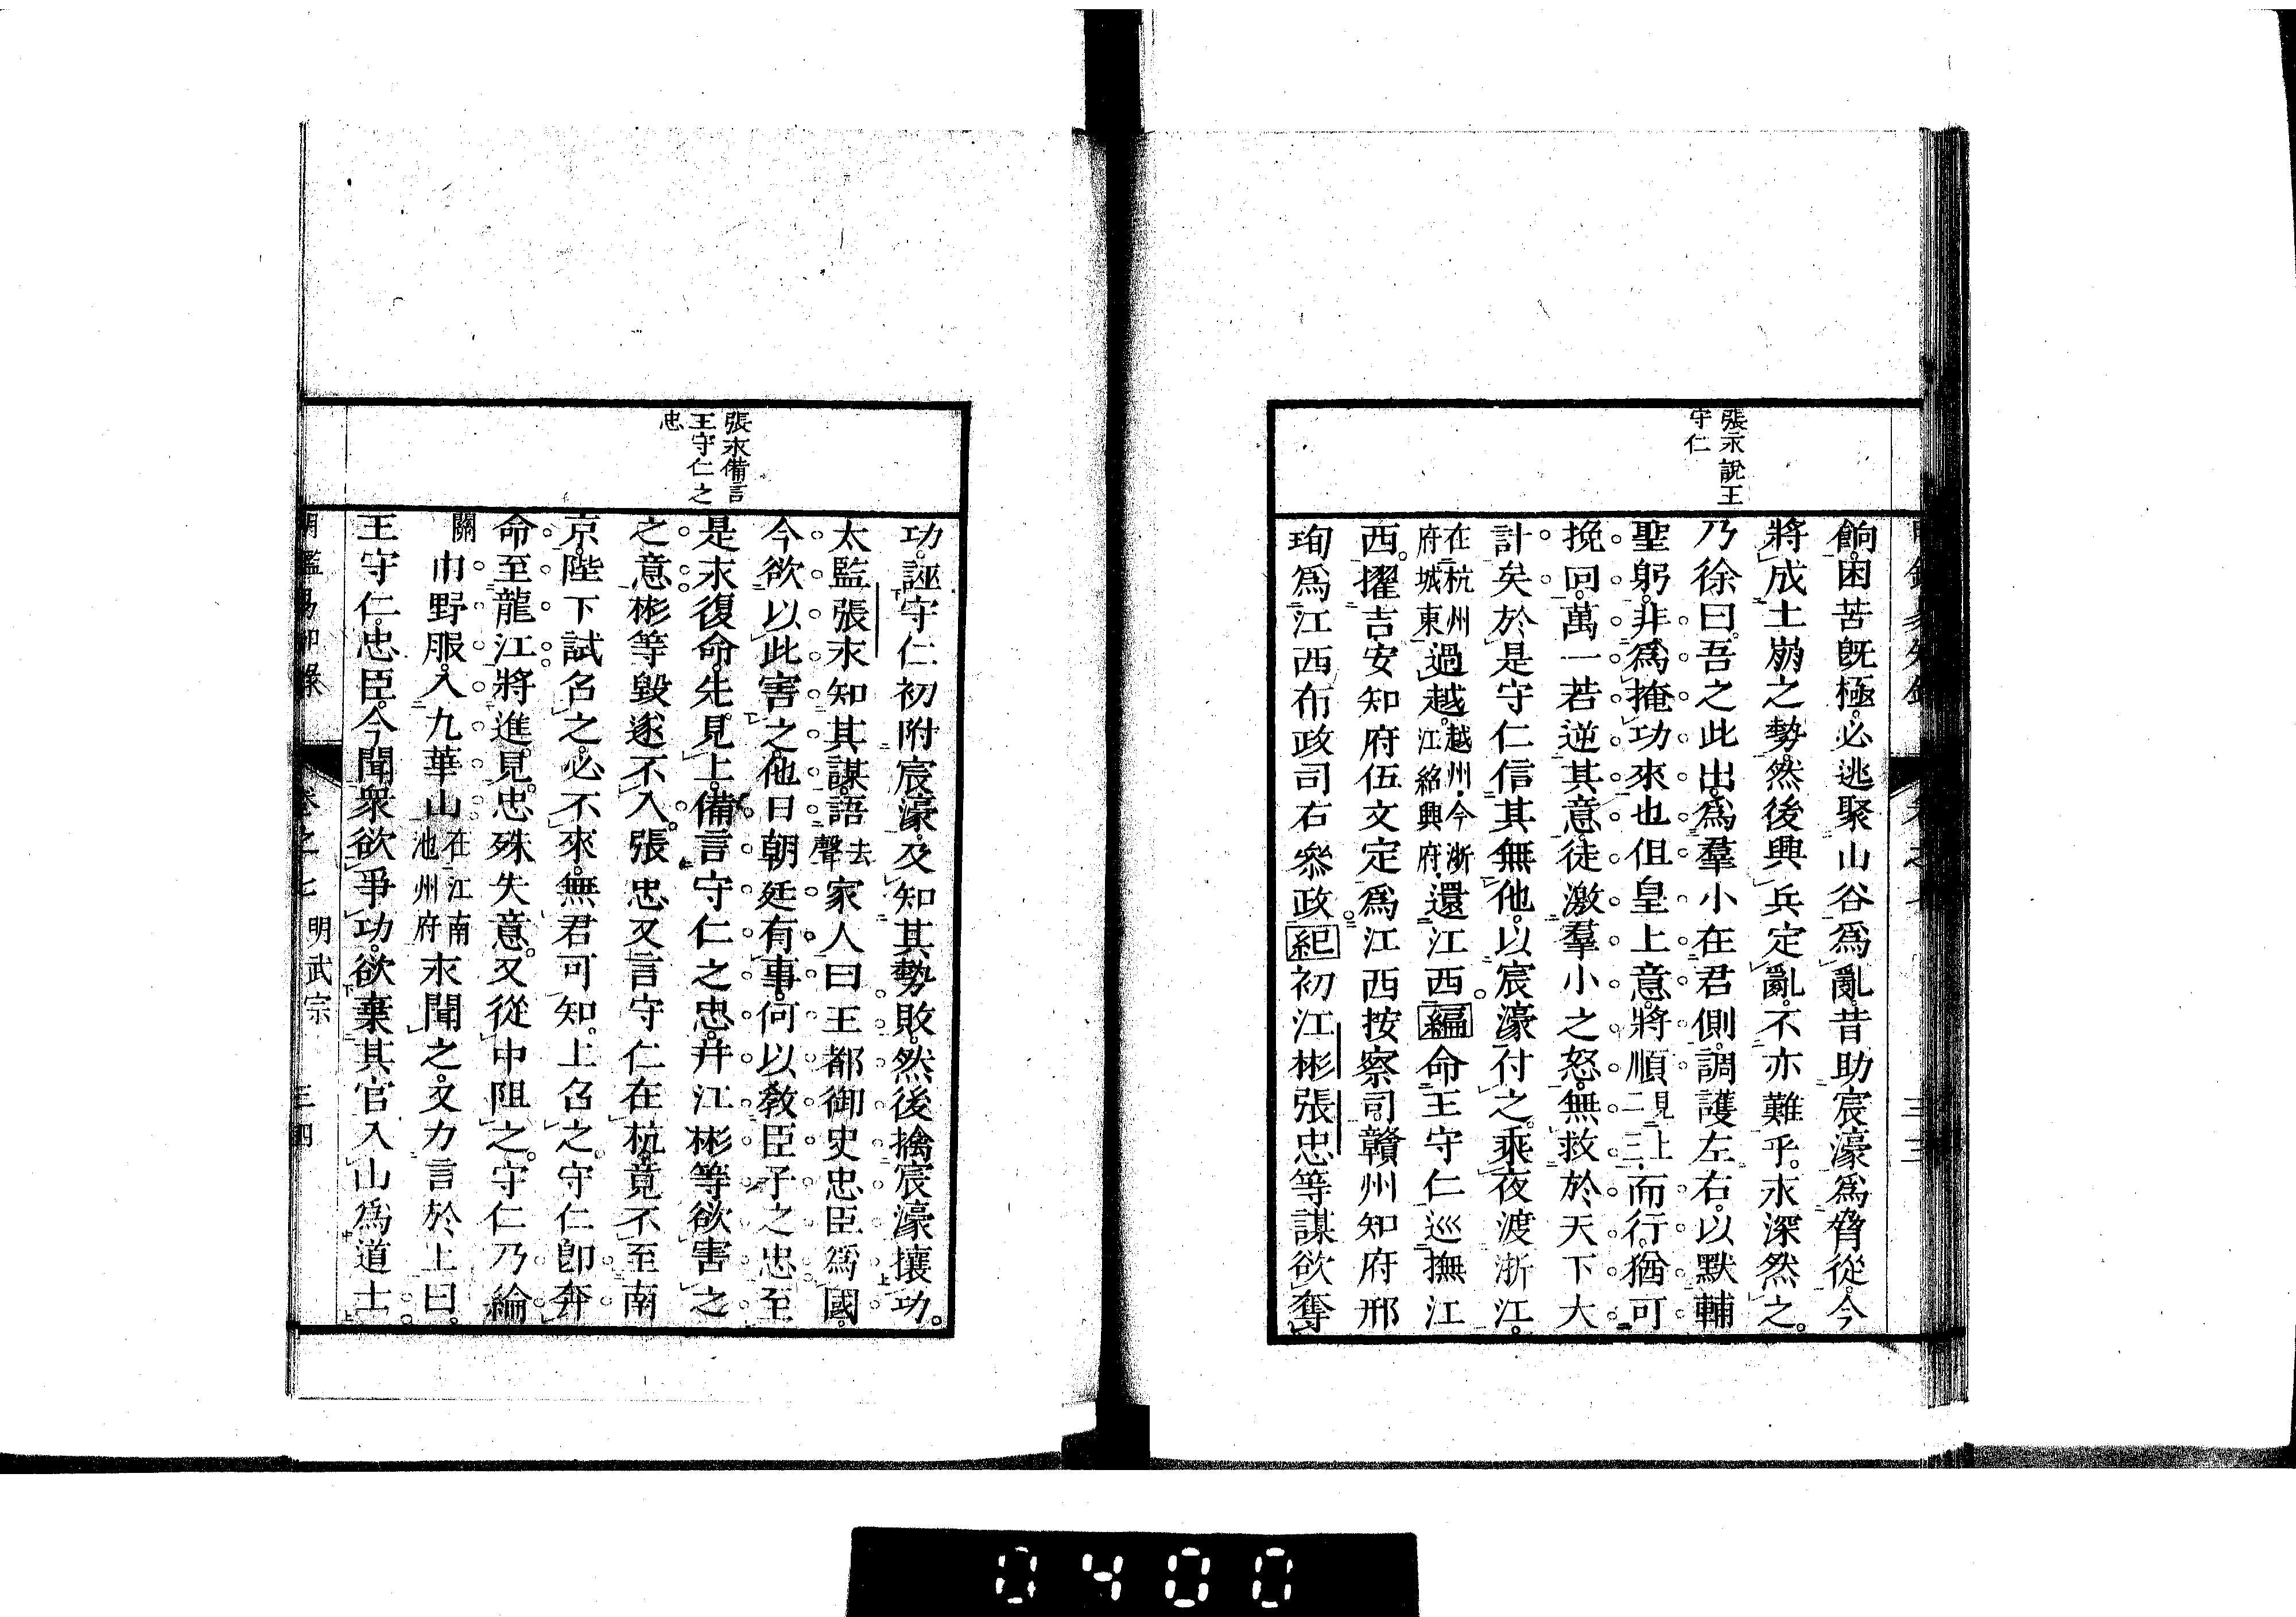 張永說王
守仁
餉。困苦既極。必逃聚山谷爲亂。昔助宸濠爲脅從。今
將成土崩之勢。然後興兵定亂。不亦難乎。永深然之。
乃徐曰。吾之此出。爲羣小在君側。調護左右。以默輔
聖躬。非爲掩功來也。但皇上意。將順見上二三而行。猶可
挽回萬一。若逆其意。徒激羣小之怒。無救於天下大
計矣。於是守仁信其無他。以宸濠付之。乘夜渡浙江。
在杭州府城東過越。越州今浙江紹興府還江西。編命王守仁巡撫江
西。擢吉安知府伍文定爲江西按察司。贛州知府邢
珣爲江西布政司右參政。紀初江彬張忠等謀欲奪
卷之七
三三
張永備言
王守仁之
忠
功。誣守仁初附宸濠。及知其勢敗。然後擒宸濠攘功。
太監張永知其謀。語去聲家人曰。王都御史忠臣爲國。
今欲以此害之。他日朝廷有事。何以教臣子之忠。至
是永復命。先見上。備言守仁之忠。并江彬等欲害之
之意。彬等毀遂不入。張忠又言守仁在杭。竟不至南
京。陛下試召之。必不來。無君可知。上召之。守仁卽奔
命至龍江。將進見。忠殊失意。又從中阻之。守仁乃綸
關巾野服。入九華山在江南池州府永聞之。又力言於上曰。
王守仁。忠臣。今聞衆欲爭功。欲棄其官入山爲道士。
明鑑易知錄
卷之七 明武宗 三四
0400